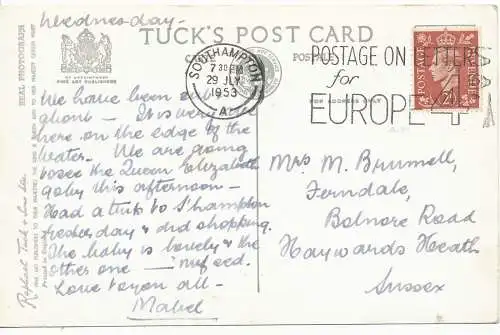 Wednesday-
TUCK'S POST CARD
BY APPOINTMENT
FINE ART PUBLISHERS
REAL PHOTOGRAPH
Raphael Tuck & Sons Ltd.
SOUTHAMPTON
7 30 PM
29 JLY
1953
A
POSTAGE ON LETTERS
for
EUROPE 4
POSTAGE
REVENUE
2D
FOR ADDRESS ONLY
We have been
. It is very nice
here on the edge of the
water. We are going
to see the Queen Elizabeth
go by this afternoon -
Had a trip to S'hampton
yesterday & did shopping.
The baby is lovely & the
other one
Love to you all -
Mabel
Mrs M. Brumell,
Ferndale,
Bolnore Road
Haywards Heath
Sussex